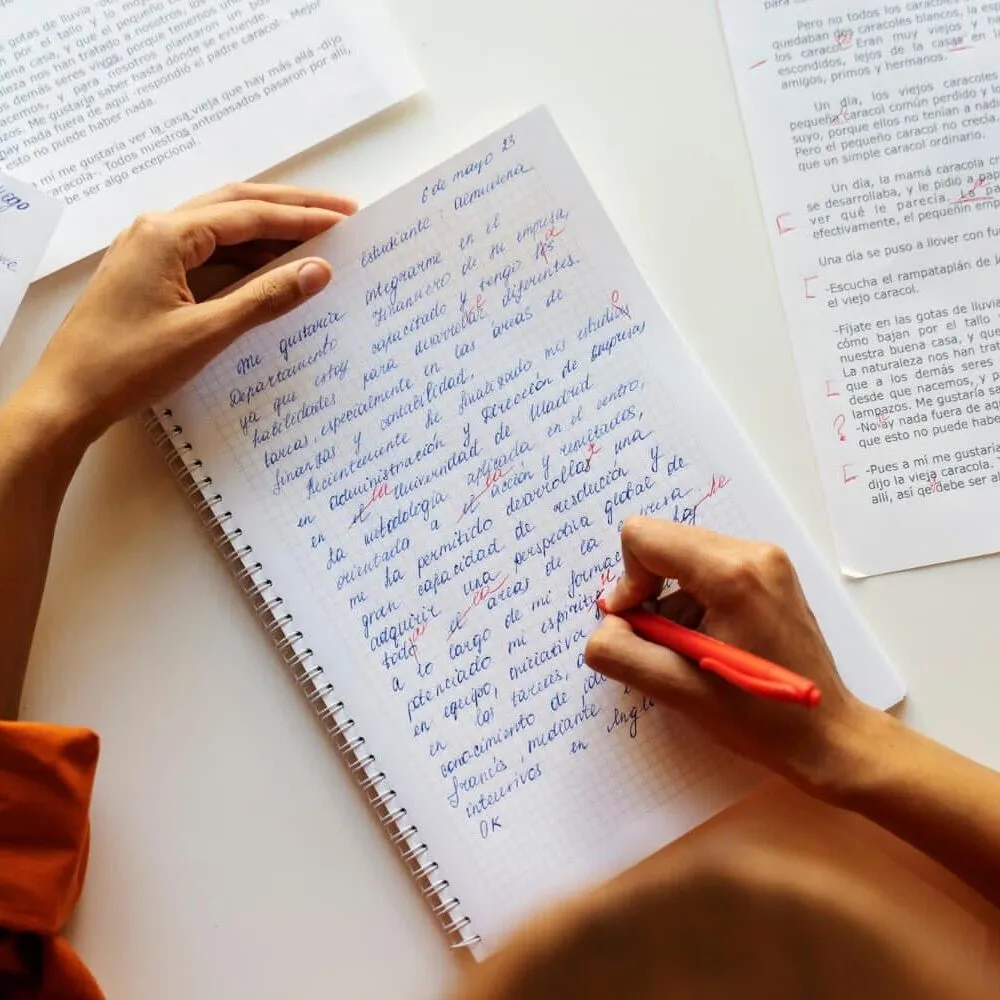 gotas de lluvia
por el tallo y lo
buena casa, y que el pequeño
leza nos han tratado a nosotros, los
s demás seres vivos, porque tenemos una
acemos, y para nosotros plantaron un bos
zos. Me gustaría saber hasta dónde se extiende.
hay nada fuera de aquí, respondió el padre caracol. Mejor
esto no puede haber nada.
a mi me gustaría ver la casa vieja que hay más allá -dijo
aracola-. Todos nuestros antepasados pasaron por allí,
be ser algo excepcional.
6 de mayo 23
estudiante: demuneva
Me gustaría integrarme en el
Departamento Financiero de su empresa,
ya que estoy capacitado y tengo las
habilidades para desarrollar diferentes
tareas, especialmente en las áreas de
finanzas y contabilidad.
Recientemente he finalizado mis estudios
en administración y Dirección de Empresas
en el la Universidad de Madrid
La metodología aplicada en el centro,
orientada a el la acción y resultados,
me ha permitido desarrollar una
gran capacidad de resolución y de
adquirir una perspectiva global de
todo el la áreas de la empresa.
A lo largo de mi formac hoy
potenciado mi espíritu
en equipo, iniciativa
en las tareas, a
conocimiento de idi
francés, mediante
intensivos en Ingl
OK
para
Pero no todos los caracoles
quedaban dos caracoles blancos, la esp
los caracol Eran muy viejos y h
escondidos, lejos de la casa en
amigos, primos y hermanos.
Un día, los viejos caracoles
pequeño caracol común perdido y lo
suyo, porque ellos no tenían a nad
Pero el pequeño caracol no crecía
que un simple caracol ordinario.
Un día, la mamá caracola cr
se desarrollaba, y le pidió a pap
ver qué le parecía. La pa
efectivamente, el pequeñin emp
Una día se puso a llover con fu
-Escucha el rampataplán de l
el viejo caracol.
-Fíjate en las gotas de lluvi
cómo bajan por el tallo
nuestra buena casa, y qu
La naturaleza nos han trat
que a los demás seres
desde que nacemos, y p
lampazos. Me gustaría sa
-No ay nada fuera de aq
que esto no puede habe
?
-Pues a mi me gustaría
dijo la vieja caracola. T
allí, así qe debe ser al